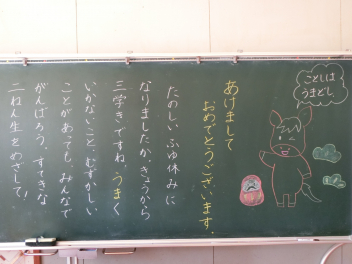 ことしは
うまどし
あけまして
おめでとうございます。
たのしい、ふゆ休みに
なりましたか。きょうから
三学きですね。うまく
いかないこと、むずかしい
ことがあっても、みんなで
がんばろう。すてきな
二ねん生をめざして!